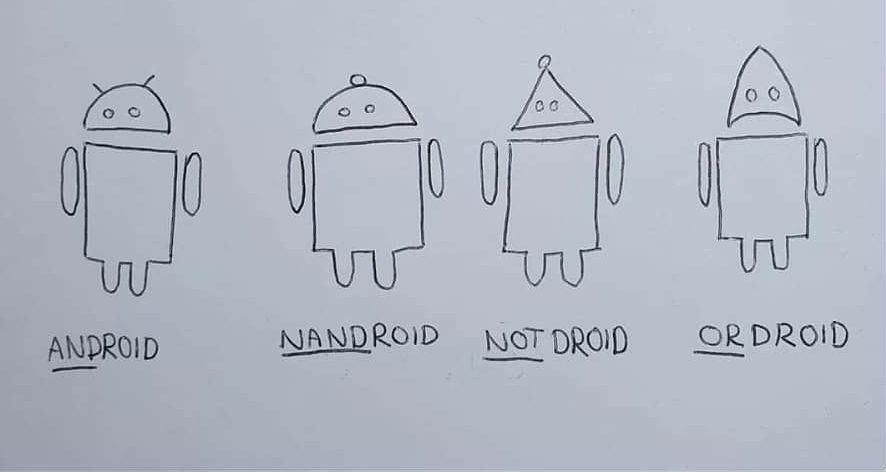 ANDROID
NANDROID
NOTDROID
ORDROID